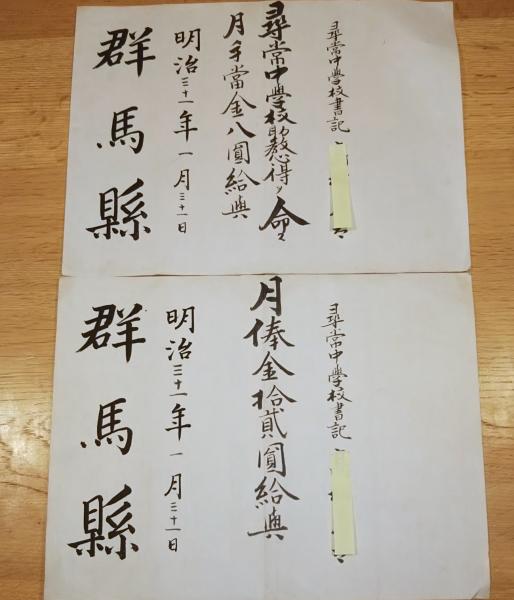 尋常中學校書記
尋常中學校助教心得ヲ命ス
月手當金八圓給與
明治三十一年一月三十一日
群馬縣
尋常中學校書記
月俸金拾貳圓給與
明治三十一年一月三十一日
群馬縣